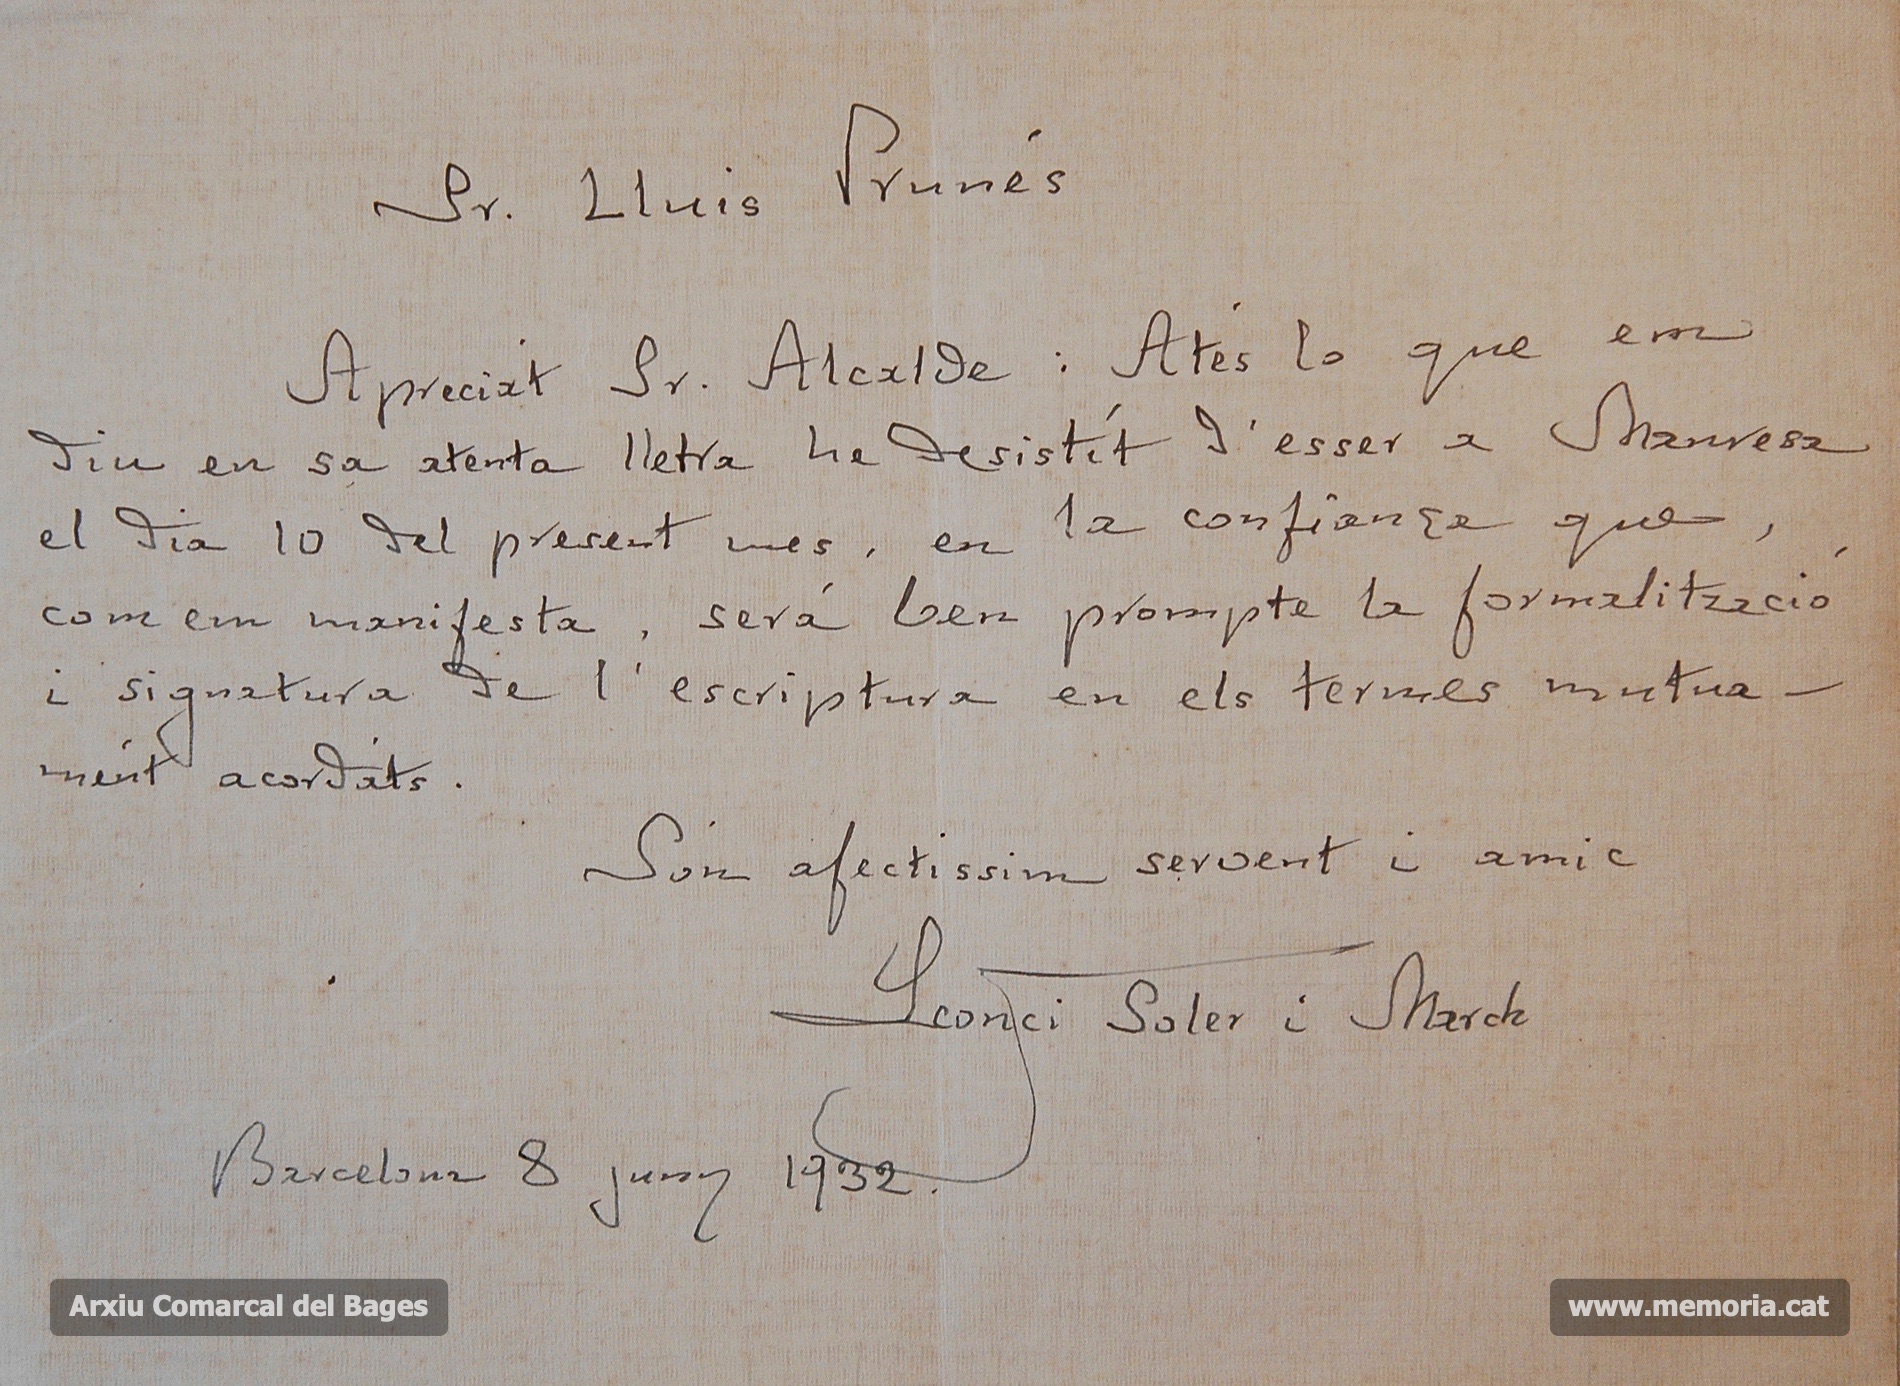 Sr. Lluis Prunés
Apreciat Sr. Alcalde : Atés lo que em
diu en sa atenta lletra he desistít d'esser a Manresa
el dia 10 del present mes, en la confiança que,
com em manifesta, será ben prompte la formalització
i signatura de l'escriptura en els termes mutua-
mént acordáts.
Són afectissim servent i amic
Leonci Soler i March
Barcelona 8 juny 1932.
Arxiu Comarcal del Bages
www.memoria.cat